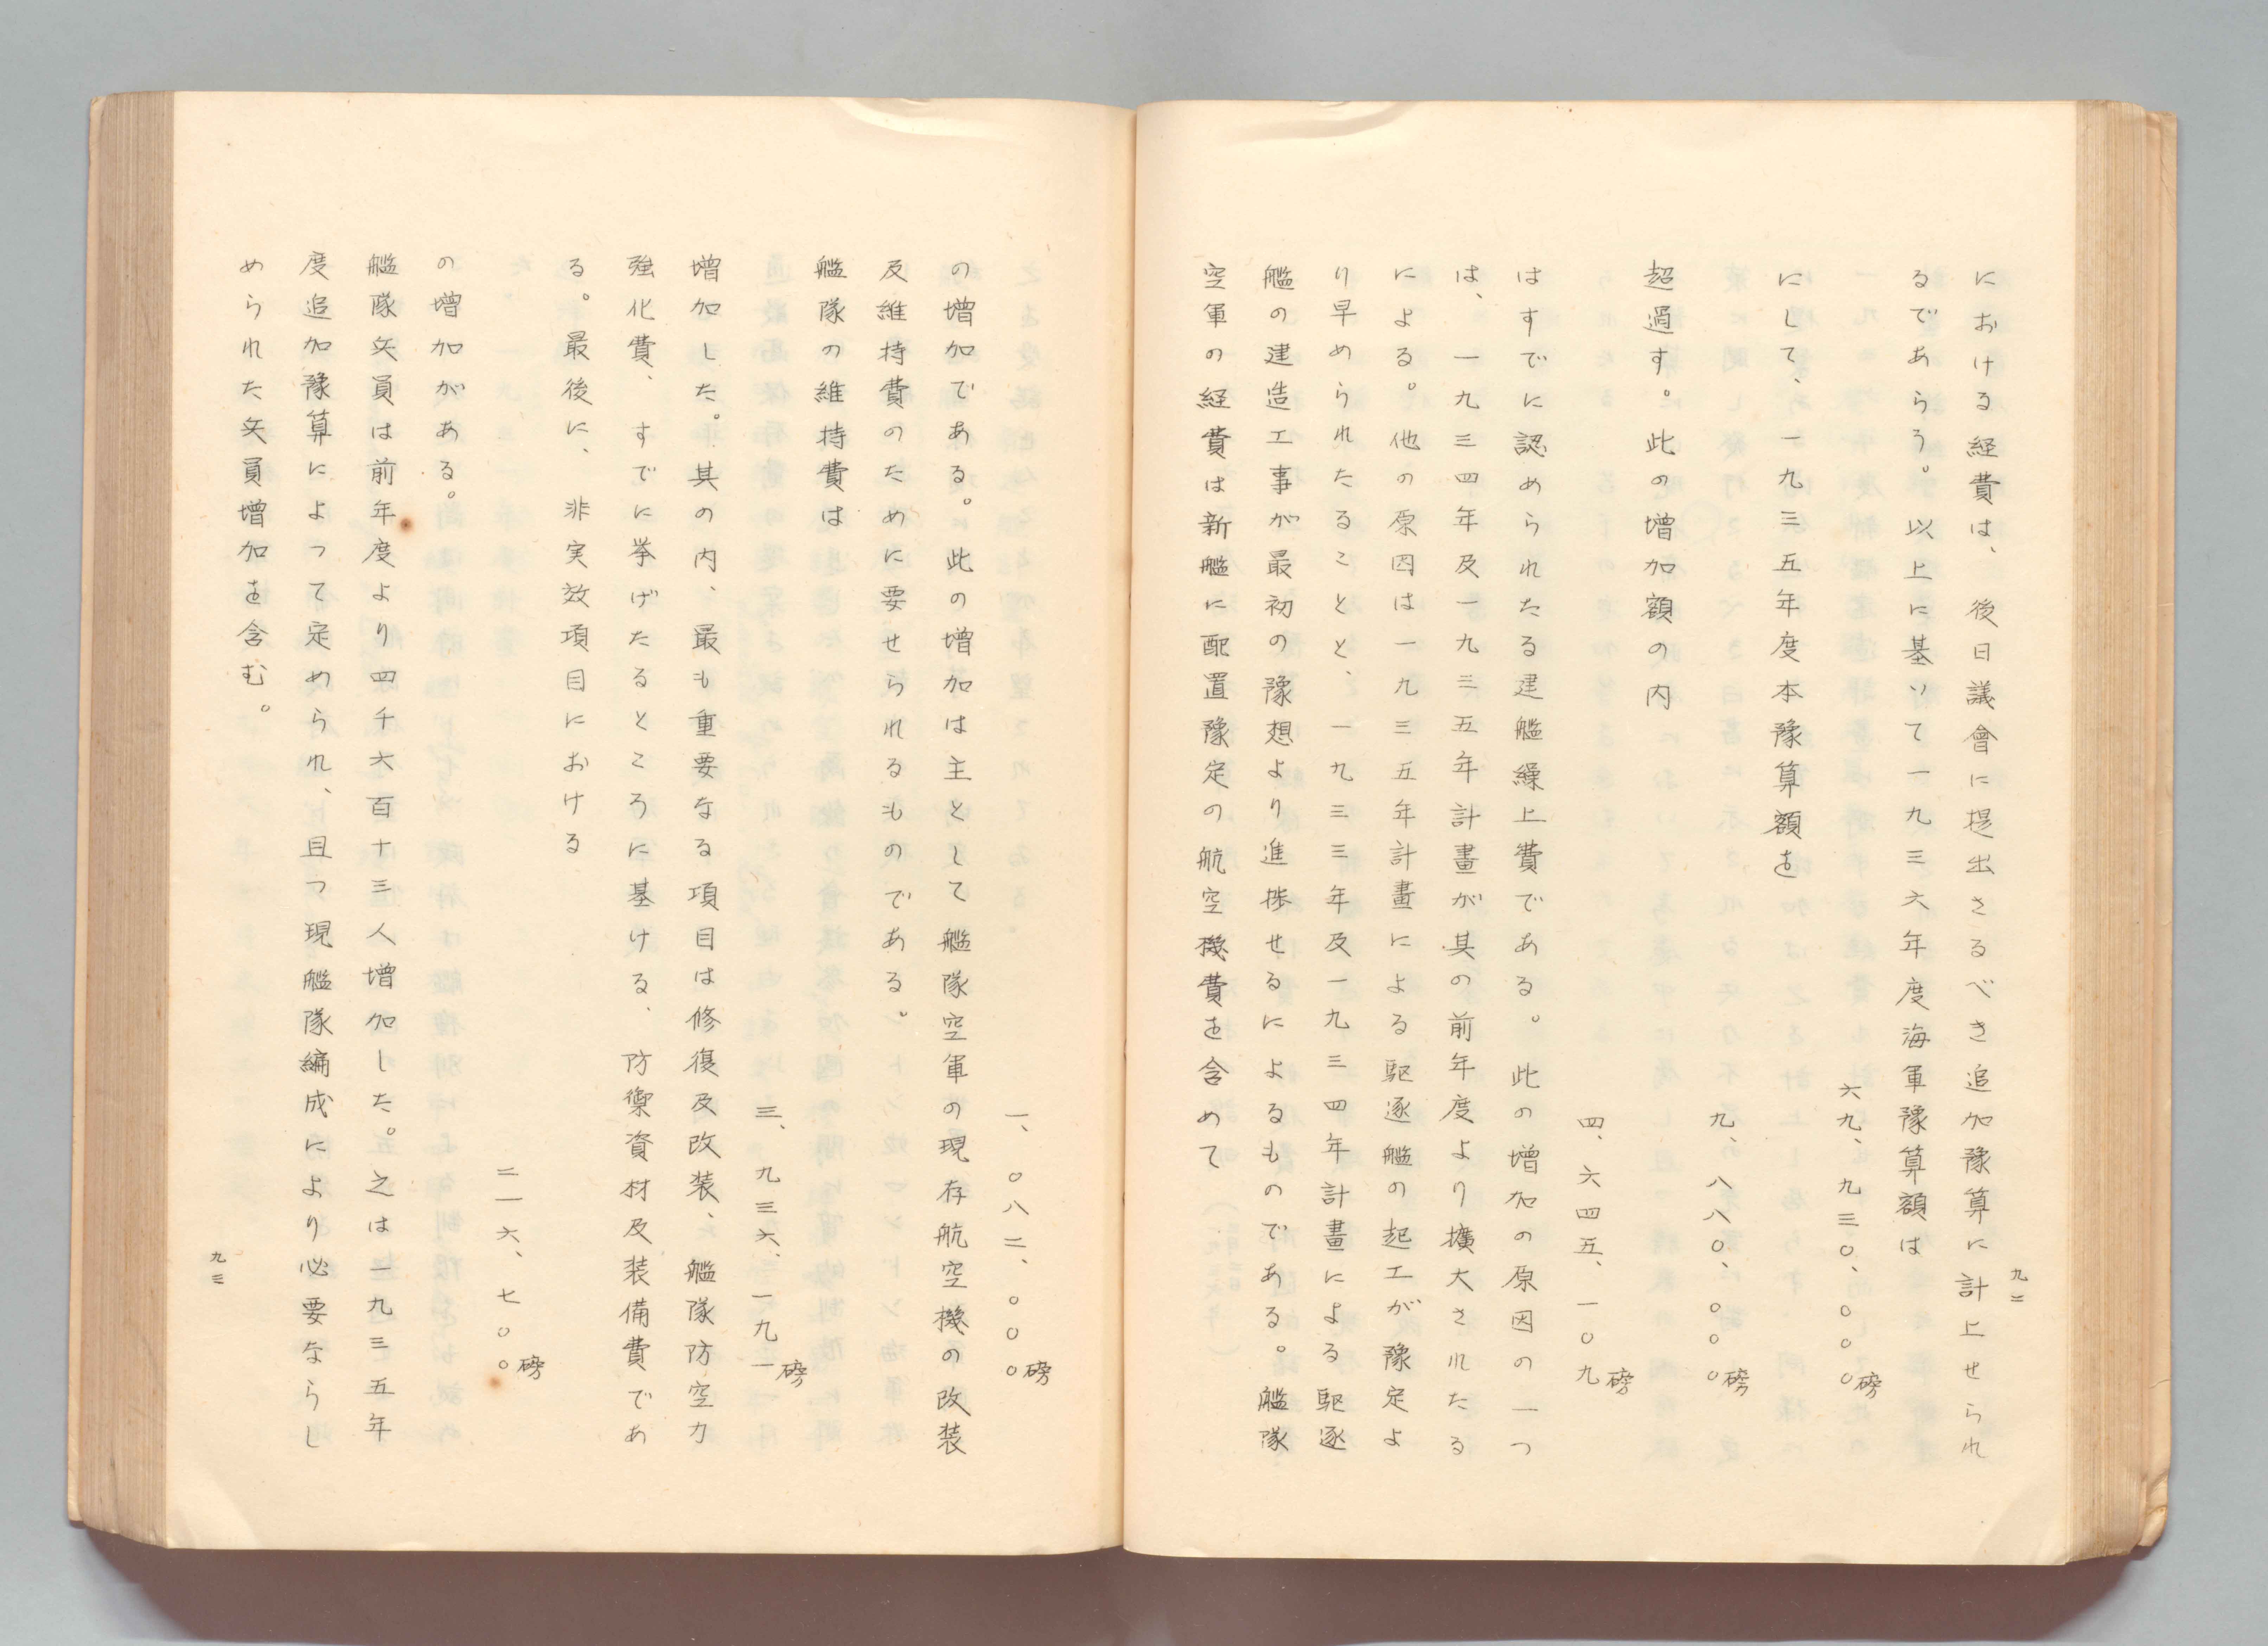 における経費は、後日議會に提出さるべき追加豫算に計上せられ
るであらう。以上に基いて一九三六年度海軍豫算額は
六九、九三〇、〇〇〇磅
にして、一九三五年度本豫算額を
九、八八〇、〇〇〇磅
超過す。此の增加額の内
四、六四五、一〇九磅
はすでに認められたる建艦繰上費である。此の增加の原因の一つ
は、一九三四年及一九三五年計畫が其の前年度より擴大されたる
による。他の原因は一九三五年計畫による駆逐艦の起工が豫定よ
り早められたることと、一九三三年及一九三四年計畫による駆逐
艦の建造工事が最初の豫想より進捗せるによるものである。艦隊
空軍の経費は新艦に配置豫定の航空機費を含めて
九二
一、〇八二、〇〇〇磅
の増加である。此の増加は主として艦隊空軍の現存航空機の改装
及維持費のために要せられるものである。
艦隊の維持費は
三、九三六、一九一磅
増加した。其の内、最も重要なる項目は修復及改装、艦隊防空力
強化費、すでに挙げたるところに基ける、防禦資材及装備費であ
る。最後に、非実效項目における
二一六、七〇〇磅
の増加がある。
艦隊兵員は前年度より四千六百十三人増加した。之は一九三五年
度追加豫算によつて定められ、且つ現艦隊編成により必要ならし
められた兵員増加を含む。
九三